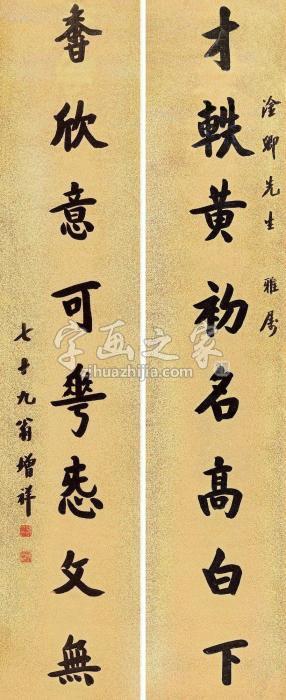 淦卿先生 雅属
才軼黄初名高白下
香欣意可文無
七十九翁增祥
字画之家
zihuazhijia.com